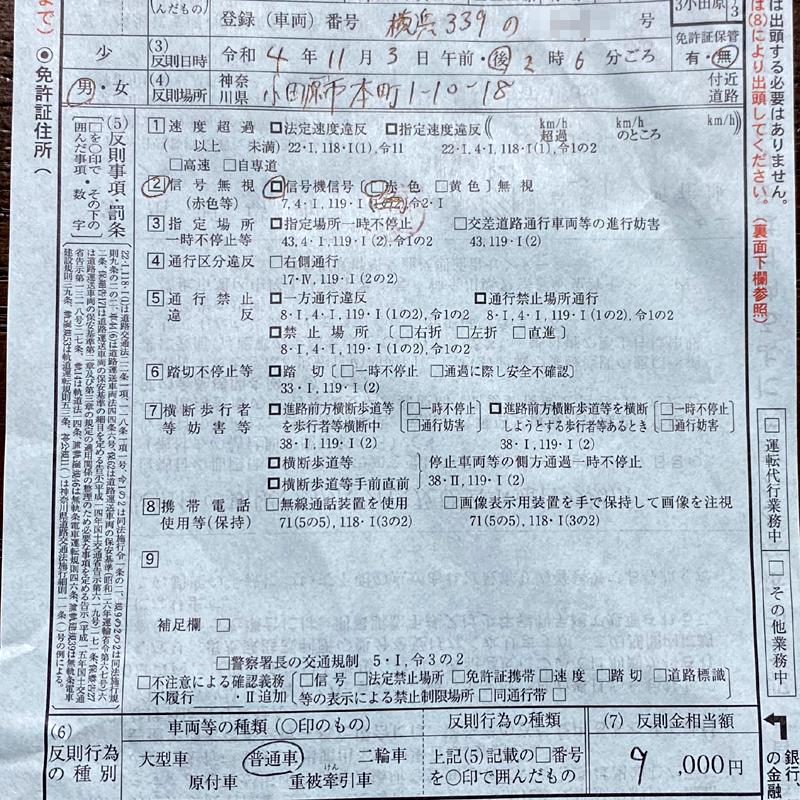 んだもの)
登録(車両)番号 横浜339の 号
3小田原 13
少
(3)
反則日時
令和 4 年 11 月 3 日 午前・後 2 時 6 分ごろ
免許証保管
有・無
男・女
(4)
反則場所
神奈川県 小田原市本町1-10-18
付近
道路
まで)●免許証住所(
は出頭する必要はありません。
は(8)により出頭してください。(裏面下欄参照)
(5)反則事項・罰条
□を○印で囲んだ事項・その下の数字
1 速度超過 □法定速度違反 □指定速度違反( km/h超過 km/hのところ km/h)
(以上 未満) 22・I,118・I(1),令11 22・I,4・I,118・I(1),令1の2
□高速 □自専道
2 信号無視 □信号機信号〔□赤色 □黄色〕無視
(赤色等) 7,4・I,119・I(1の2),令2・I
3 指定場所 □指定場所一時不停止 □交差道路通行車両等の進行妨害
一時不停止等 43,4・I,119・I(2),令1の2 43,119・I(2)
4 通行区分違反 □右側通行
17・IV,119・I(2の2)
5 通行禁止 □一方通行違反 □通行禁止場所通行
違反 8・I,4・I,119・I(1の2),令1の2 8・I,4・I,119・I(1の2),令1の2
□禁止場所〔□右折 □左折 □直進〕
8・I,4・I,119・I(1の2),令1の2
6 踏切不停止等 □踏切〔□一時不停止 □通過に際し安全不確認〕
33・I,119・I(2)
7 横断歩行者 □進路前方横断歩道等〔□一時不停止 □進路前方横断歩道等を横断〔□一時不停止
等妨害等 を歩行者等横断中 □通行妨害〕 しようとする歩行者等あるとき □通行妨害〕
38・I,119・I(2) 38・I,119・I(2)
□横断歩道等 停止車両等の側方通過一時不停止
□横断歩道等手前直前 38・II,119・I(2)
8 携帯電話 □無線通話装置を使用 □画像表示用装置を手で保持して画像を注視
使用等(保持) 71(5の5),118・I(3の2) 71(5の5),118・I(3の2)
9
補足欄 □
□警察署長の交通規制 5・I,令3の2
□不注意による確認義務〔□信号 □法定禁止場所 □免許証携帯 □速度 □踏切 □道路標識
不履行 ・II追加 等の表示による禁止制限場所 □同通行帯 □〕
□運転代行業務中
□その他業務中
(6)
反則行為の種別
車両等の種類(○印のもの)
大型車 普通車 二輪車
原付車 重被牽引車
けん
反則行為の種類
上記(5)記載の□番号
を○印で囲んだもの
(7) 反則金相当額
9,000円
銀行、
の金融